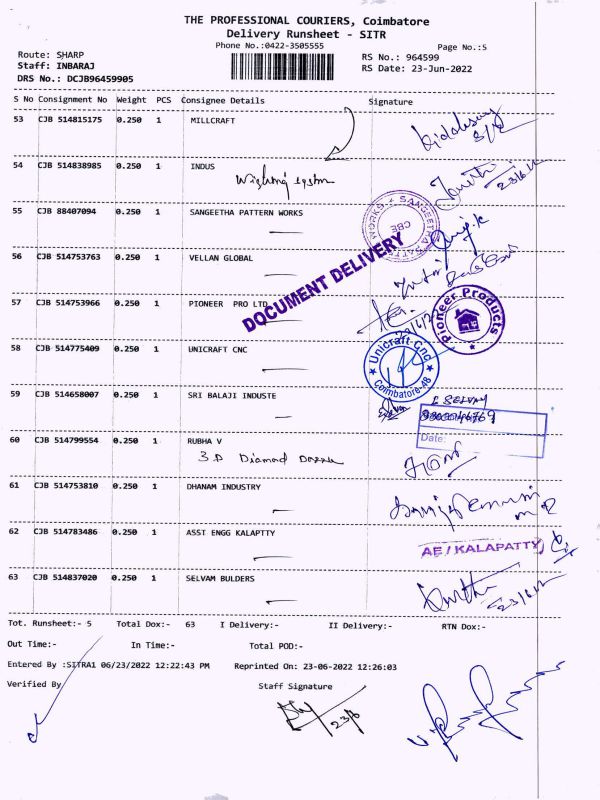 THE PROFESSIONAL COURIERS, Coimbatore
Delivery Runsheet - SITR
Phone No.:0422-3505555
Page No.:5
Route: SHARP
RS No.: 964599
Staff: INBARAJ
RS Date: 23-Jun-2022
DRS No.: DCJB96459905
S No Consignment No Weight PCS Consignee Details Signature
53 CJB 514815175 0.250 1 MILLCRAFT
54 CJB 514838985 0.250 1 INDUS
23/6/22
55 CJB 88407094 0.250 1 SANGEETHA PATTERN WORKS
SANGEETHA PATTERN WORKS
CBE
56 CJB 514753763 0.250 1 VELLAN GLOBAL
DOCUMENT DELIVERY
57 CJB 514753966 0.250 1 PIONEER PRO LTD
Pioneer Products
58 CJB 514775409 0.250 1 UNICRAFT CNC
Unicraft-Cnc
Coimbatore-48
59 CJB 514658007 0.250 1 SRI BALAJI INDUSTE
Date:
60 CJB 514799554 0.250 1 RUBHA V
3 D Diamond
61 CJB 514753810 0.250 1 DHANAM INDUSTRY
62 CJB 514783486 0.250 1 ASST ENGG KALAPTTY
AE / KALAPATTY
63 CJB 514837020 0.250 1 SELVAM BULDERS
23/6/22
Tot. Runsheet:- 5 Total Dox:- 63 I Delivery:- II Delivery:- RTN Dox:-
Out Time:- In Time:- Total POD:-
Entered By :SITRA1 06/23/2022 12:22:43 PM Reprinted On: 23-06-2022 12:26:03
Verified By Staff Signature
23/6